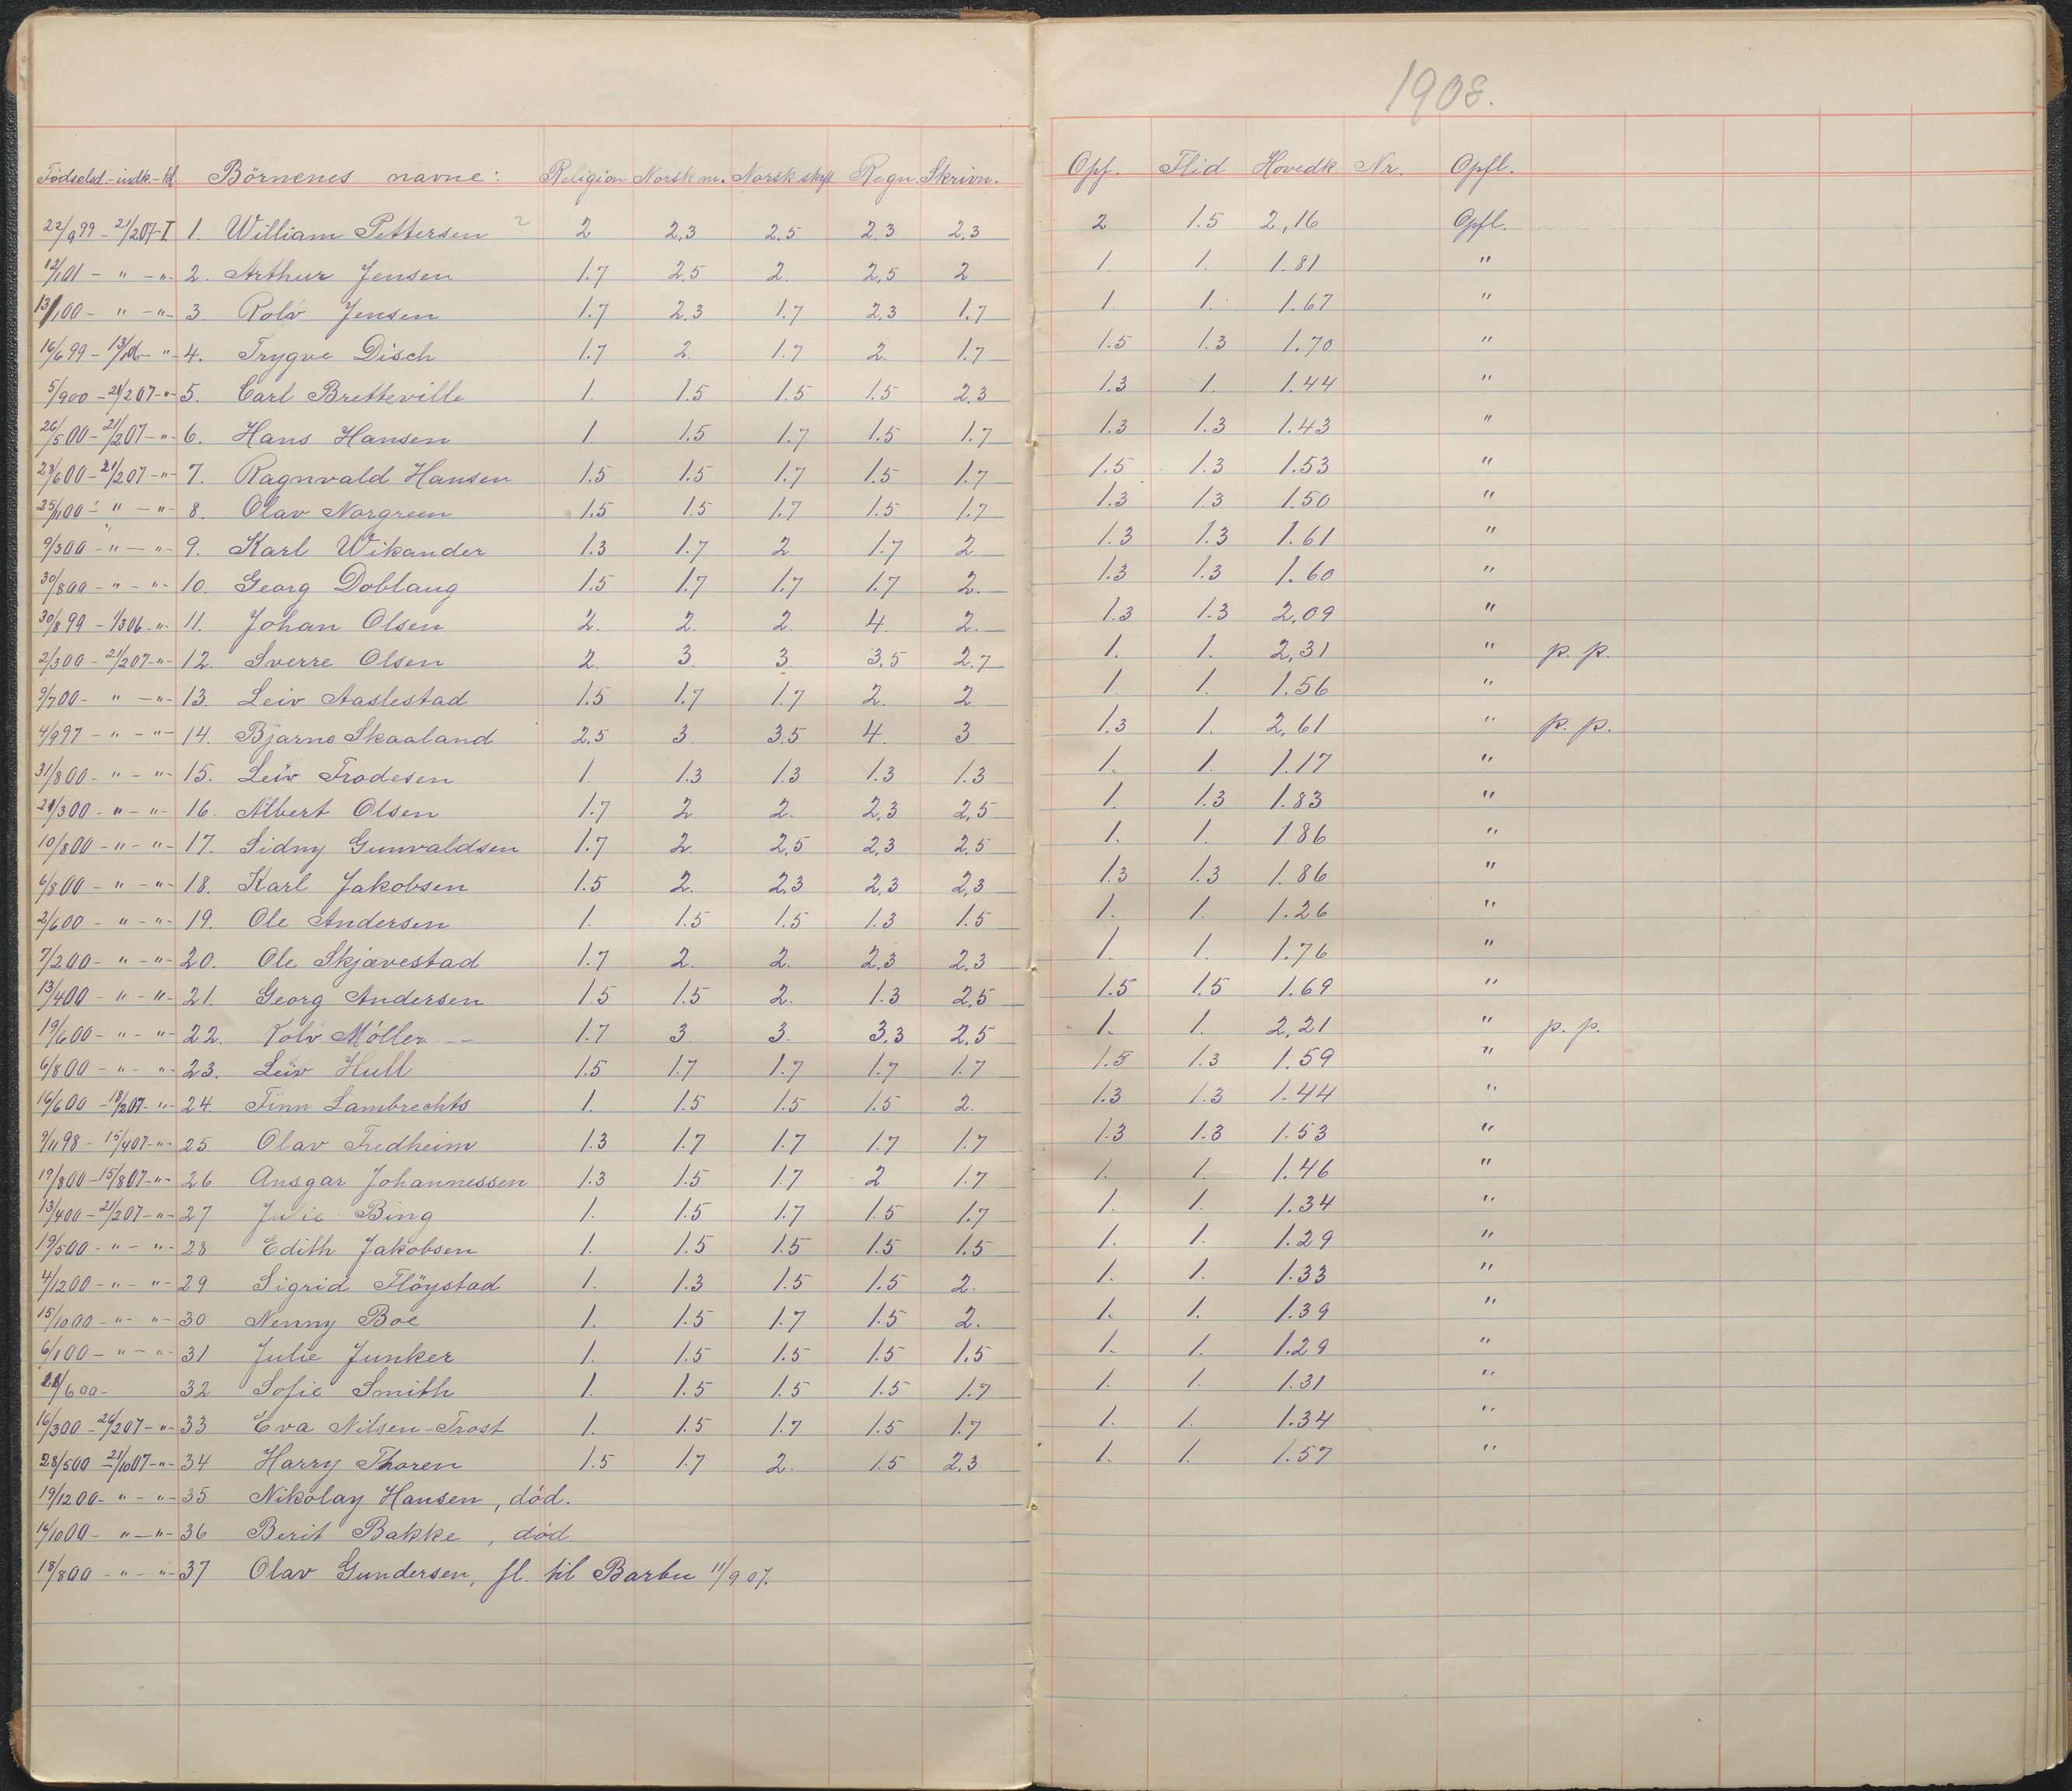 1908.
Fødselsd.-indk.-kl Börnenes navne: Religion Norsk m. Norsk skr. Regn. Skrivn. Opf. Flid Hovedk. Nr. Opfl.
22/9 99 - 21/2 07-I. 1. William Pettersen 2 2,3 2,5 2,3 2,3 2 1.5 2,16 Opfl.
12/1 01 - " - " - 2. Arthur Jensen 1.7 2,5 2. 2,5 2 1. 1. 1.81 "
13/1 00 - " - " - 3 Rolv Jensen 1.7 2,3 1.7 2,3 1.7 1. 1. 1.67 "
16/6 99 - " - 4. Trygve Disch 1.7 2. 1.7 2. 1.7 1.5 1.3 1.70 "
5/9 00 - 21/2 07 - " - 5. Carl Bretteville 1. 1.5 1.5 1.5 2,3 1.3 1. 1.44 "
26/5 00 - 21/2 07 - " - 6. Hans Hansen 1. 1.5 1.7 1.5 1.7 1.3 1.3 1.43 "
28/6 00 - 21/2 07 - " - 7. Ragnvald Hansen 1.5 1.5 1.7 1.5 1.7 1.5 1.3 1.53 "
25/11 00 - " - " - 8. Olav Norgreen 1.5 1.5 1.7 1.5 1.7 1.3 1.3 1.50 "
9/3 00 - " - " - 9. Karl Wikander 1.3 1.7 2 1.7 2 1.3 1.3 1.61 "
30/8 00 - " - " - 10. Georg Doblaug 1.5 1.7 1.7 1.7 2. 1.3 1.3 1.60 "
30/8 99 - 1/3 06 - " - 11. Johan Olsen 2. 2. 2. 4. 2. 1.3 1.3 2,09 "
2/3 00 - 21/2 07 - " - 12. Sverre Olsen 2. 3. 3. 3,5 2.7 1. 1. 2,31 " p. p.
9/7 00 - " - " - 13. Leiv Aaslestad 1.5 1.7 1.7 2. 2 1. 1. 1.56 "
4/9 97 - " - " - 14. Bjarne Skaaland 2,5 3. 3.5 4. 3 1.3 1. 2,61 " p. p.
31/8 00 - " - " - 15. Leiv Frodesen 1. 1.3 1.3 1.3 1.3 1. 1. 1.17 "
21/3 00 - " - " - 16. Albert Olsen 1.7 2 2. 2,3 2,5 1. 1.3 1.83 "
10/8 00 - " - " - 17. Sidny Gunvaldsen 1.7 2. 2,5 2,3 2,5 1. 1. 1.86 "
6/8 00 - " - " - 18. Karl Jakobsen 1.5 2. 2,3 2,3 2,3 1.3 1.3 1.86 "
2/6 00 - " - " - 19. Ole Andersen 1. 1.5 1.5 1.3 1.5 1. 1. 1.26 "
7/2 00 - " - " - 20. Ole Skjævestad 1.7 2. 2. 2,3 2,3 1. 1. 1.76 "
13/4 00 - " - " - 21. Georg Andersen 1.5 1.5 2. 1.3 2,5 1.5 1.5 1.69 "
19/6 00 - " - " - 22. Rolv Möller 1.7 3 3. 3,3 2,5 1. 1. 2,21 " p. p.
6/8 00 - " - " - 23. Leiv Hull 1.5 1.7 1.7 1.7 1.7 1.5 1.3 1.59 "
16/6 00 - 18/2 07 - " - 24. Finn Lambrechts 1. 1.5 1.5 1.5 2. 1.3 1.3 1.44 "
9/11 98 - 15/4 07 - " - 25 Olav Fredheim 1.3 1.7 1.7 1.7 1.7 1.3 1.3 1.53 "
19/8 00 - 15/8 07 - " - 26 Ansgar Johannessen 1.3 1.5 1.7 2 1.7 1. 1. 1.46 "
13/4 00 - 21/2 07 - " - 27 Julie Bing 1. 1.5 1.7 1.5 1.7 1. 1. 1.34 "
19/5 00 - " - " - 28 Edith Jakobsen 1. 1.5 1.5 1.5 1.5 1. 1. 1.29 "
4/12 00 - " - " - 29 Sigrid Flöystad 1. 1.3 1.5 1.5 2. 1. 1. 1.33 "
15/10 00 - " - " - 30 Nenny Boe 1. 1.5 1.7 1.5 2. 1. 1. 1.39 "
6/1 00 - " - " - 31 Julie Junker 1. 1.5 1.5 1.5 1.5 1. 1. 1.29 "
/6 00 - 32 Sofie Smith 1. 1.5 1.5 1.5 1.7 1. 1. 1.31 "
16/3 00 - 26/2 07 - " - 33 Eva Nilsen-Trost 1. 1.5 1.7 1.5 1.7 1. 1. 1.34 "
28/5 00 - 21/10 07 - " - 34 Harry Thoren 1.5 1.7 2. 1.5 2,3 1. 1. 1.57 "
19/12 00 - " - " - 35 Nikolay Hansen, död.
16/10 00 - " - " - 36 Berit Bakke, död.
18/8 00 - " - " - 37 Olav Gundersen, fl. til Barbu 11/9 07.